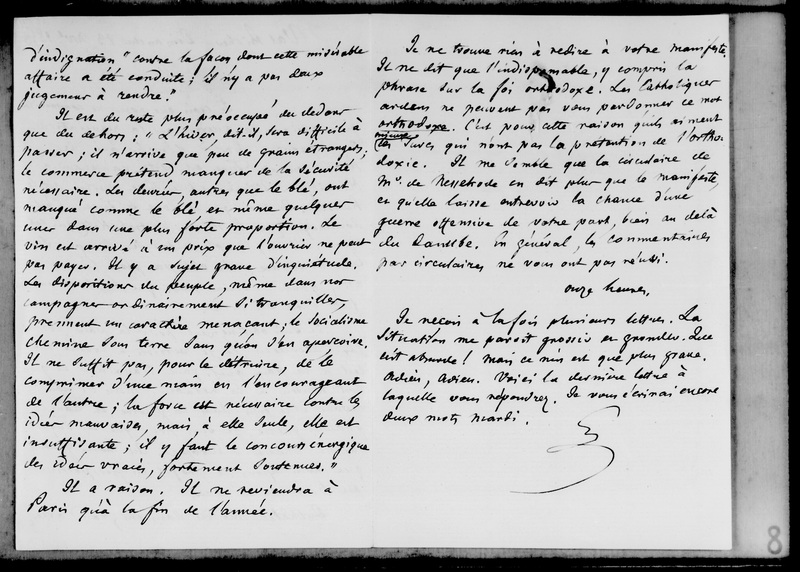 d'indignation" contre la façon dont cette misérable
affaire a été conduite; il n'y a pas deux
jugemens à rendre."
Il est du reste plus préoccupé du dedans
que du dehors; "L'hiver, dit-il, sera difficile à
passer; il n'arrive que peu de grains étrangers;
le commerce prétend manquer de la sécurité
nécessaire. Les denrées, autres que le blé, ont
manqué comme le blé et même quelques
unes dans une plus forte proportion. Le
vin est arrivé à un prix que l'ouvrier ne peut
pas payer. Il y a sujet grave d'inquiétude.
Les dispositions du peuple, même dans nos
campagnes ordinairement si tranquilles,
prennent un caractère menaçant; le socialisme
chemine sous terre sans qu'on s'en aperçoive.
Il ne suffit pas, pour le détruire, de le
comprimer d'une main en l'encourageant
de l'autre; la force est nécessaire contre les
idées mauvaises, mais à elle seule, elle est
insuffisante; il y faut le concours énergique
des idées vraies, fortement soutenues."
Il a raison. Il ne reviendra à
Paris qu'à la fin de l'année.
Je ne trouve rien à redire à votre manifeste.
Il ne dit que l'indispensable, y compris la
phrase sur la foi orthodoxe. Les Catholiques
ardens ne peuvent pas vous pardonner ce mot
orthodoxe. C'est pour cette raison qu'ils aiment
mieux
les Turcs qui n'ont pas la prétention de l'ortho-
doxie. Il me semble que la circulaire de
Mr. de Nesselrode en dit plus que le manifeste,
et qu'elle laisse entrevoir la chance d'une
guerre offensive de votre part, biais au delà
du Danube. En général, les commentaires
par circulaires ne vous ont pas réussi.
Onze heures,
Je reçois à la fois plusieurs lettres. La
situation me paroit grossir en grondant. Que
c'est absurde! Mais ce n'en est que plus grave.
Adieu, Adieu. Voici la dernière lettre à
laquelle vous répondrez. Je vous écrirai encore
deux mots mardi.
8